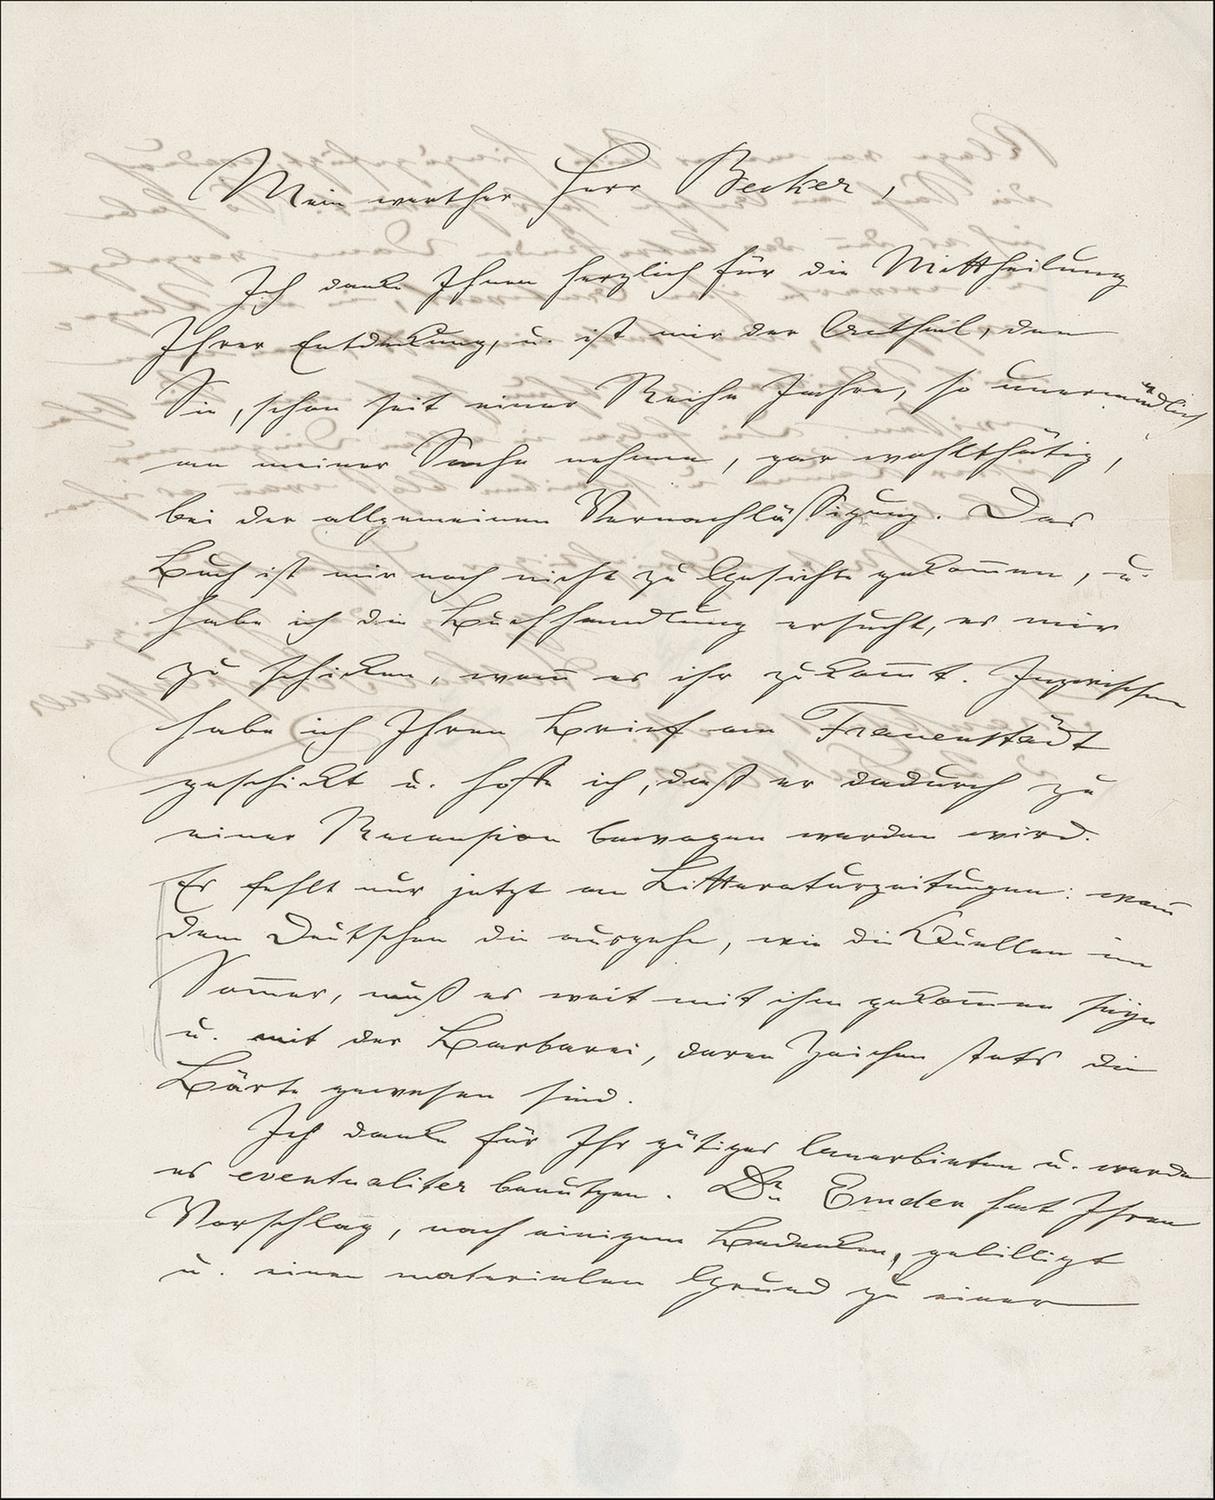 Mein werther Herr Becker,
Ich danke Ihnen herzlich für die Mittheilung
Ihrer Entdeckung, u. ist mir der Antheil, den
Sie, schon seit einer Reihe Jahre, so unermüdlich
an meiner Sache nehmen, gar wohlthätig,
bei der allgemeinen Vernachlässigung. Das
Buch ist mir noch nicht zu Gesichte gekom̄en, u.
habe ich die Buchhandlung ersucht, es mir
zu schicken, wan̄ es ihr zukom̄t. Inzwischen
habe ich Ihren Brief an Frauenstädt
geschickt u. hoffe ich, daß er dadurch zu
einer Recension bewogen werden wird.
Es fehlt nur jetzt an Litteraturzeitungen: wan̄
dem Deutschen die ausgehn, wie die Quellen im
Som̄er, muß es weit mit ihm gekom̄en seyn
u. mit der Barbarei, deren Zeichen stets die
Bärte gewesen sind.
Ich danke für Ihr gütiges Anerbieten u. werde
es eventualiter benutzen. Dr. Emden hat Ihren
Vorschlag, nach einigem Bedenken, gebilligt
u. einen materialen Grund zu einer